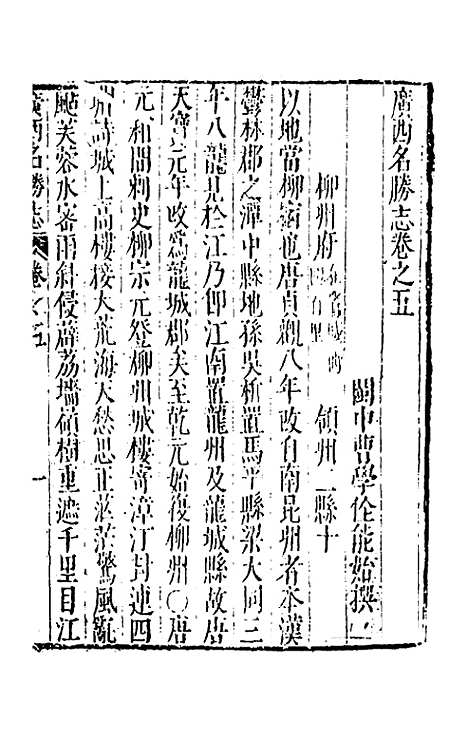 廣西名勝志卷之五
閩中曹學佺能始撰
柳州府 領州二縣十
以地當柳宿也唐貞觀八年改自南昆州者本漢
鬱林郡之潭中縣地孫吳析置馬平縣梁大同三
年八龍見於江乃卽江南置龍州及龍城縣故唐
天寶元年改爲龍城郡矣至乾元始復柳州〇唐
元和間刺史柳宗元登柳州城樓寄漳汀封連四
詩城上高樓接大荒海天愁思正茫茫驚風亂
颭芙蓉水密雨斜侵薜荔墻嶺樹重遮千里目江
廣西名勝志 卷之五 一